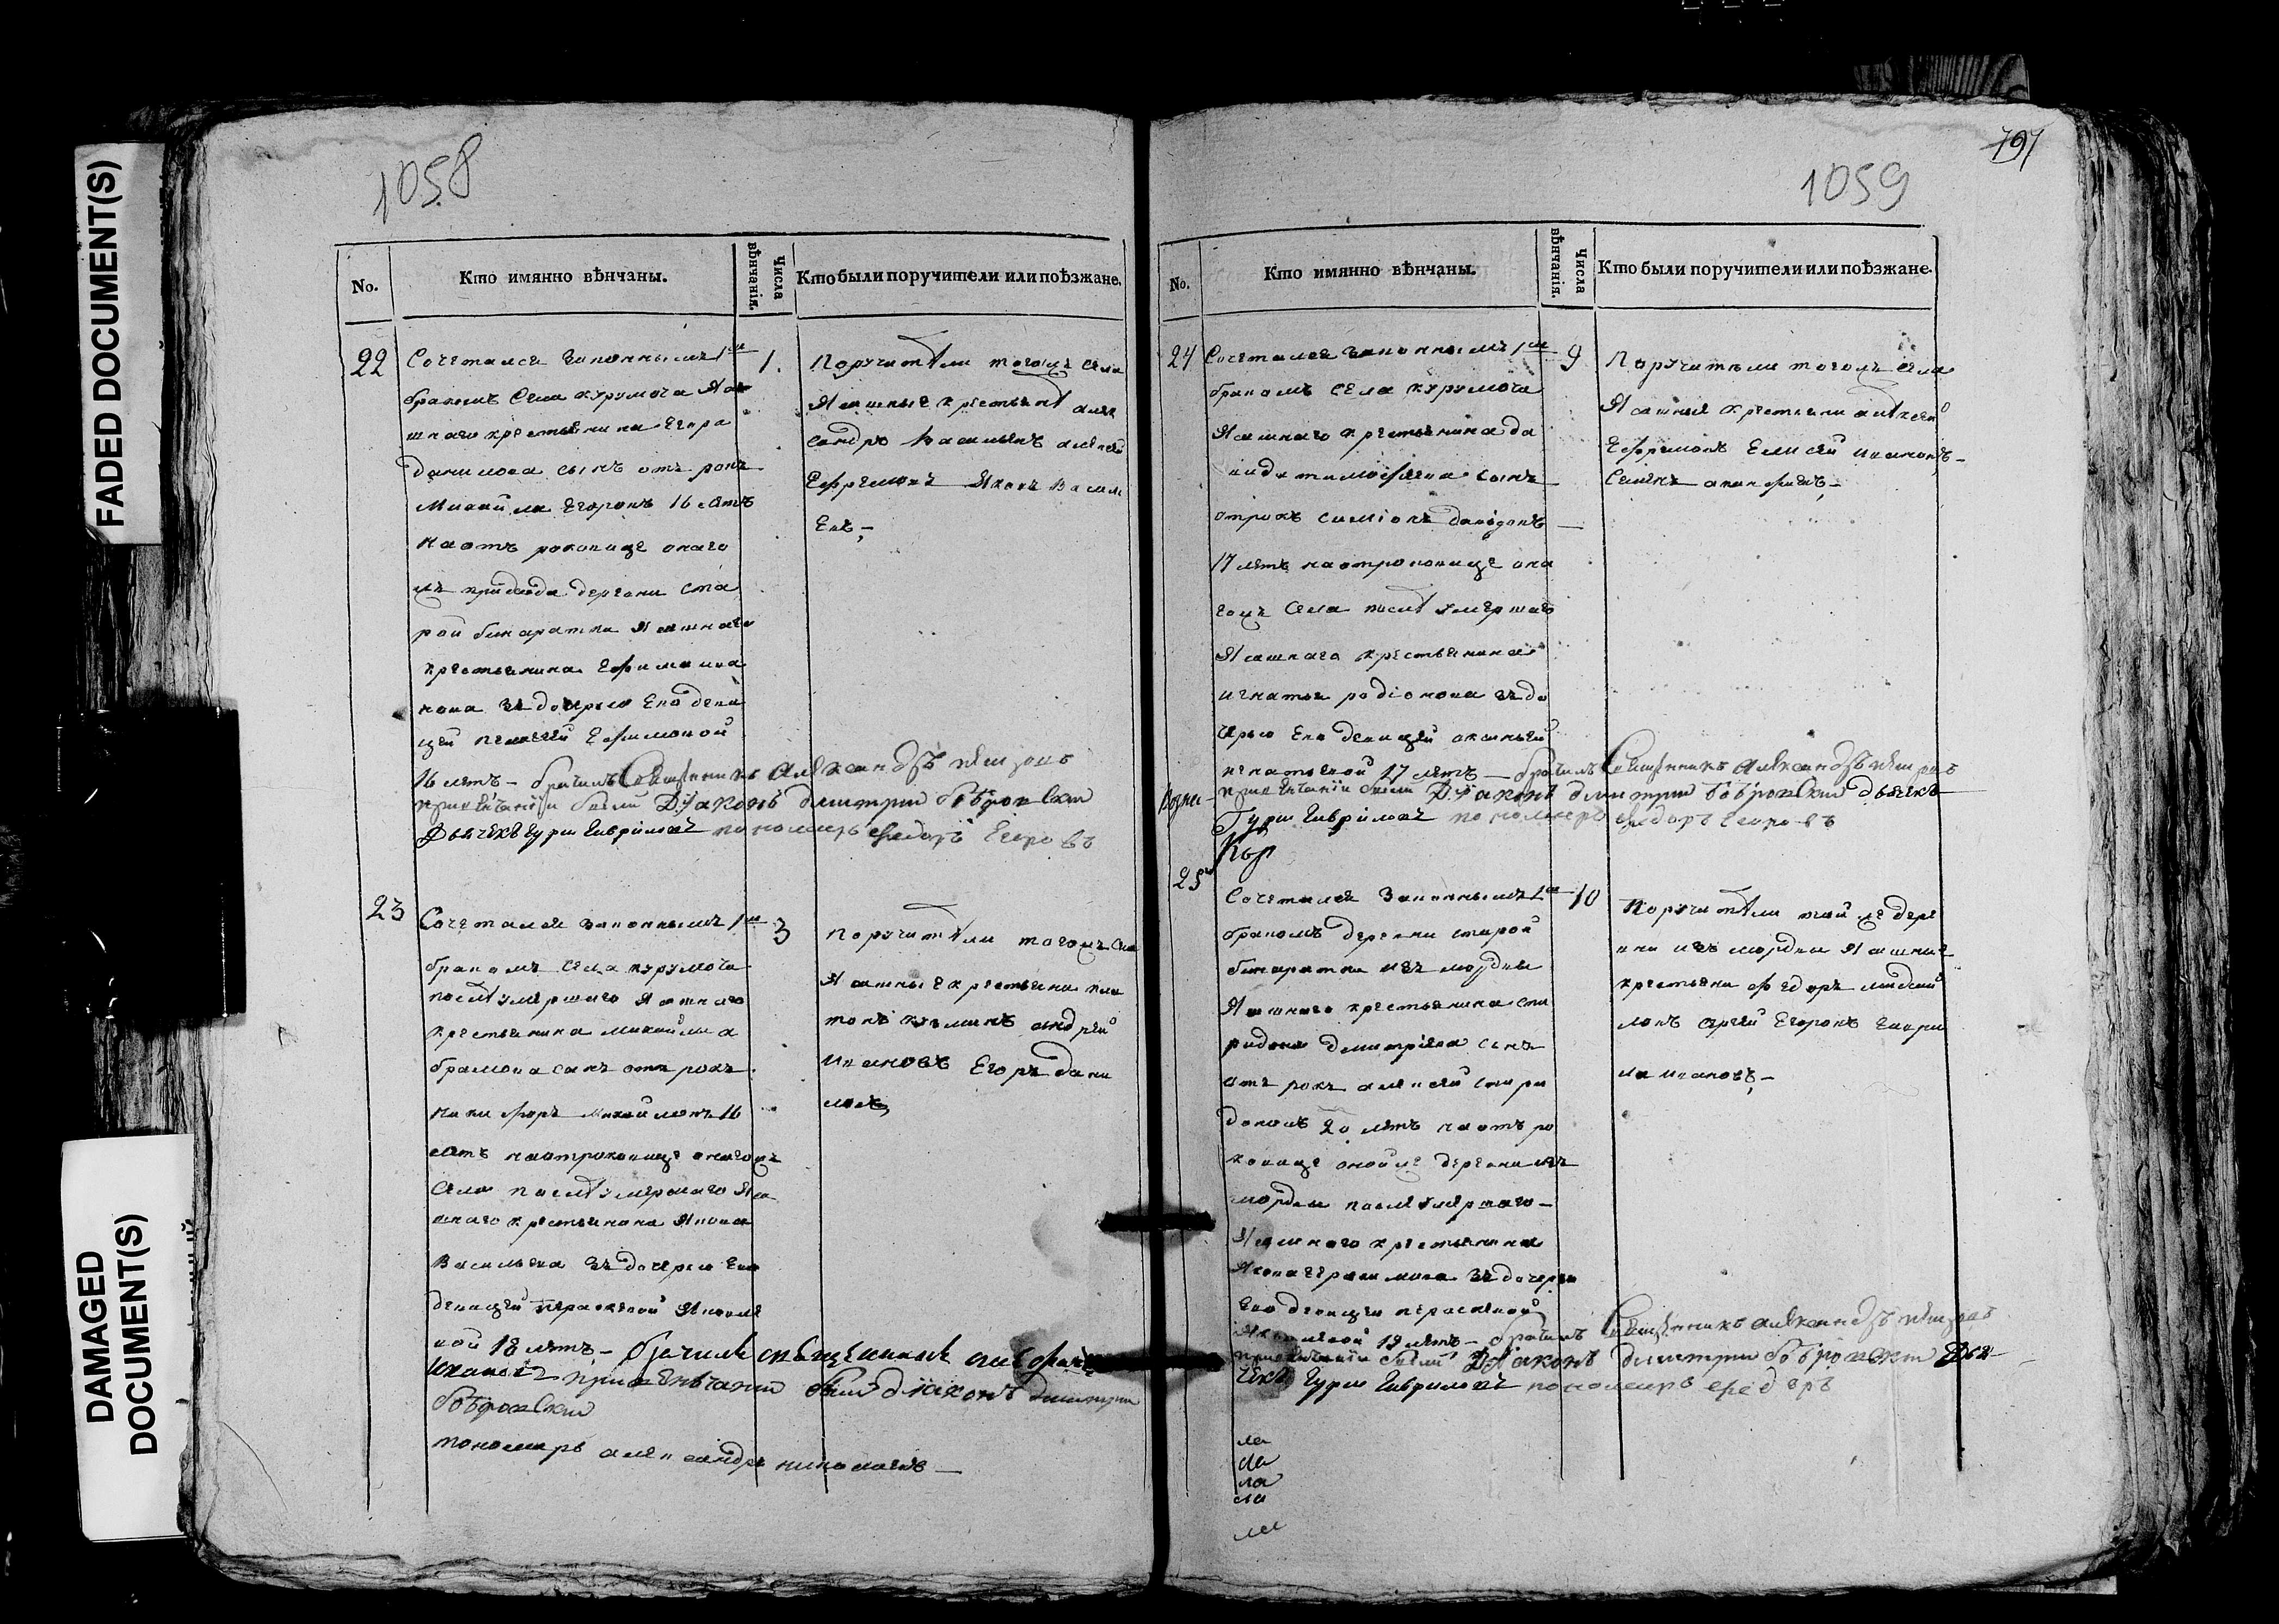 FADED DOCUMENT(S)
DAMAGED DOCUMENT(S)
1058
No.
Кто имянно вѣнчаны.
Числа вѣнчанія.
Кто были поручители или поѣзжане.
22
Сочетался законнымъ 1м
бракомъ села курумоча Яса
шнаго крестьянина Егора
данилова сынъ отъ рокъ
Михайла Егоровъ 16 летъ
на отъ роковице онаго
жъ прихода деревни ста
рой бинаратки Ясашнаго
крестьянина Ефима ива
нова за дочерью Ево деви
цей Ефимовой
16 летъ – бра́чилъ Священникъ Александръ петровъ
при венчаніи были Діаконъ дмитрий бобровский
Дьячекъ гурий Гавриловъ пономарь федоръ Егоровъ
1.
Поручители тогожъ села
Ясашные крестьяне алек
сандръ васильевъ алексей
Ефремовъ Яковъ васили
Евъ,
23
Сочетался законнымъ 1м
бракомъ села курумоча
после умершаго Ясашнаго
крестьянина михайлы а
брамова сынъ отъ рокъ
никифоръ михайловъ 16
летъ на отроковице онагожъ
села после умершаго Яса
шнаго крестьянина Якова
Васильева за дочерью Ево
девицей парасковой Яковле
вой 18 летъ – брачилъ священникъ
ивановъ при венчании были діаконъ дмитрий
бобровский
пономарь александръ николаевъ –
3
Поручители тогожъ села
Ясашные крестьяне пла
тонъ кузминъ андрей
ивановъ Егоръ дани
ловъ,
1059
797
No.
Кто имянно вѣнчаны.
Числа вѣнчанія.
Кто были поручители или поѣзжане.
24
Сочетался законнымъ 1м
бракомъ села курумоча
Ясашнаго крестьянина да
вида тимофеева сынъ
отрокъ симіонъ давидовъ –
17 летъ на отроковице она
гожъ села после умершаго
Ясашнаго крестьянина
игнатья родіонова за до
черью Ево девицей аксиньей
игнатьевой 17 летъ – брачилъ Священникъ Александръ петровъ
при венчаніи были Діаконъ дмитрий бобровский дьячекъ
Гурий Гавриловъ пономарь федоръ Егоровъ
9
Поручители тогожъ села
Ясашные крестьяни алексей
Ефремовъ Елисей ивановъ –
Семенъ –
25
Сочетался законнымъ 1м
бракомъ деревни старой
бинаратки изъ мордвы
Ясашнаго крестьянина спи
ридона дмитріева сынъ
отъ рокъ алексей спири
доновъ 20 летъ на отъ ро
ковице оной же деревни изъ
мордвы после умершаго –
Ясашнаго крестьянина
Якова герасимова за дочерью
Ево девицей парасковой
Яковлевой 19 летъ – брачилъ Священникъ александръ петровъ
при венчаніи были Діаконъ дмитрий бобровский Дья
чекъ гурий Гавриловъ пономарь федоръ
10
Поручители той же дере
вни изъ мордвы Ясашные
крестьяни федоръ
сергей Егоровъ гаври
ла ивановъ –
ла
ла
ла
ла